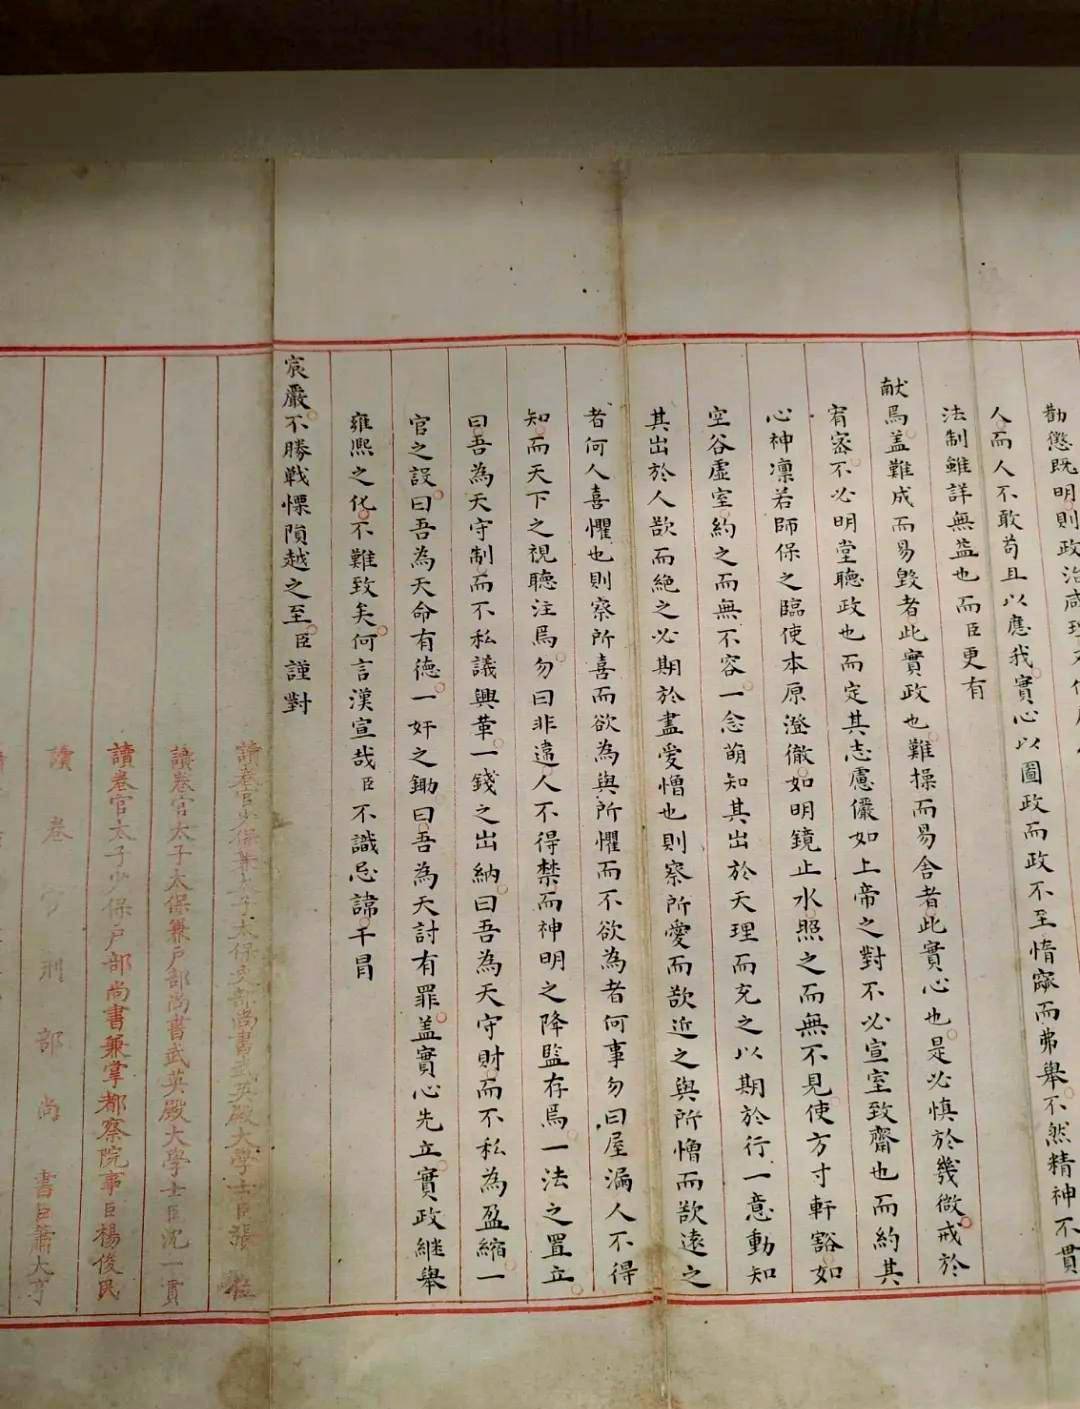 勸懲既明則政治咸理
人而人不敢苟且以應我實心以圖政而政不至惰窳而弗舉不然精神不貫
法制雖詳無益也而臣更有
献焉盖難成而易毀者此實政也難操而易舍者此實心也是必慎於幾微戒於
宥密不必明堂聽政也而定其志慮儼如上帝之對不必宣室致齋也而約其
心神凛若師保之臨使本原澄徹如明鏡止水照之而無不見使方寸軒豁如
空谷虛室約之而無不容一念萌知其出於天理而充之以期於行一意動知
其出於人欲而絶之必期於盡愛憎也則察所愛而欲近之與所憎而欲遠之
者何人喜懼也則察所喜而欲為與所懼而不欲為者何事勿曰屋漏人不得
知而天下之視聽注焉勿曰非違人不得禁而神明之降監存焉一法之置立
曰吾為天守制而不私議興革一錢之出納曰吾為天守財而不私為盈縮一
官之設曰吾為天命有德一奸之鋤曰吾為天討有罪盖實心先立實政継舉
雍熙之化不難致矣何言漢宣哉臣不識忌諱干冒
宸嚴不勝戰慄隕越之至臣謹對
讀卷官少保兼太子太保吏部尚書武英殿大學士臣張位
讀卷官太子太保兼戶部尚書武英殿大學士臣沈一貫
讀卷官太子少保戶部尚書兼掌都察院事臣楊俊民
讀卷官刑部尚書臣蕭大亨